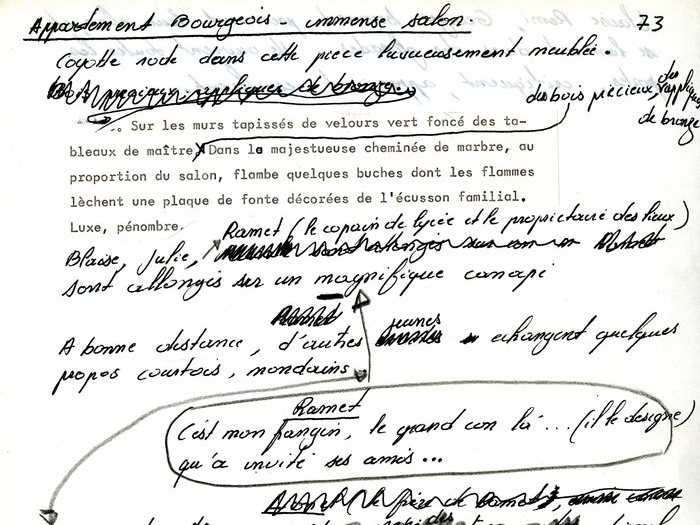 Appartement Bourgeois - immense salon.
73
Coyotte rode dans cette pièce luxueusement meublée.
appliques de bronze.
des bois précieux, des appliques de bronze
.. Sur les murs tapissés de velours vert foncé des ta-
bleaux de maître. Dans la majestueuse cheminée de marbre, au
proportion du salon, flambe quelques buches dont les flammes
lèchent une plaque de fonte décorées de l'écusson familial.
Luxe, pénombre.
Ramet (le copain de lycée et le propriétaire des lieux)
Blaise, Julie,
sont allongés sur un magnifique canapé
Ramet
A bonne distance, d'autres jeunes echangent quelques
propos courtois, mondains
Ramet
C'est mon frangin, le grand con là ... (il le designe)
qu'a invité ses amis ...
le père de